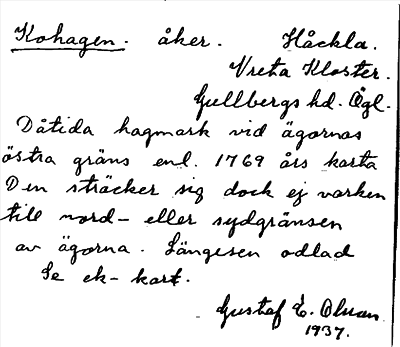 Kohagen. åker. Håckla.
Vreta Kloster.
Gullbergs hd. Ögl.
Dåtida hagmark vid ägornas
östra gräns enl. 1769 års karta
Den sträcker sig dock ej varken
till nord- eller sydgränsen
av ägorna. Längesen odlad
Se ek-kart.
Gustaf E. Olsson.
1937.